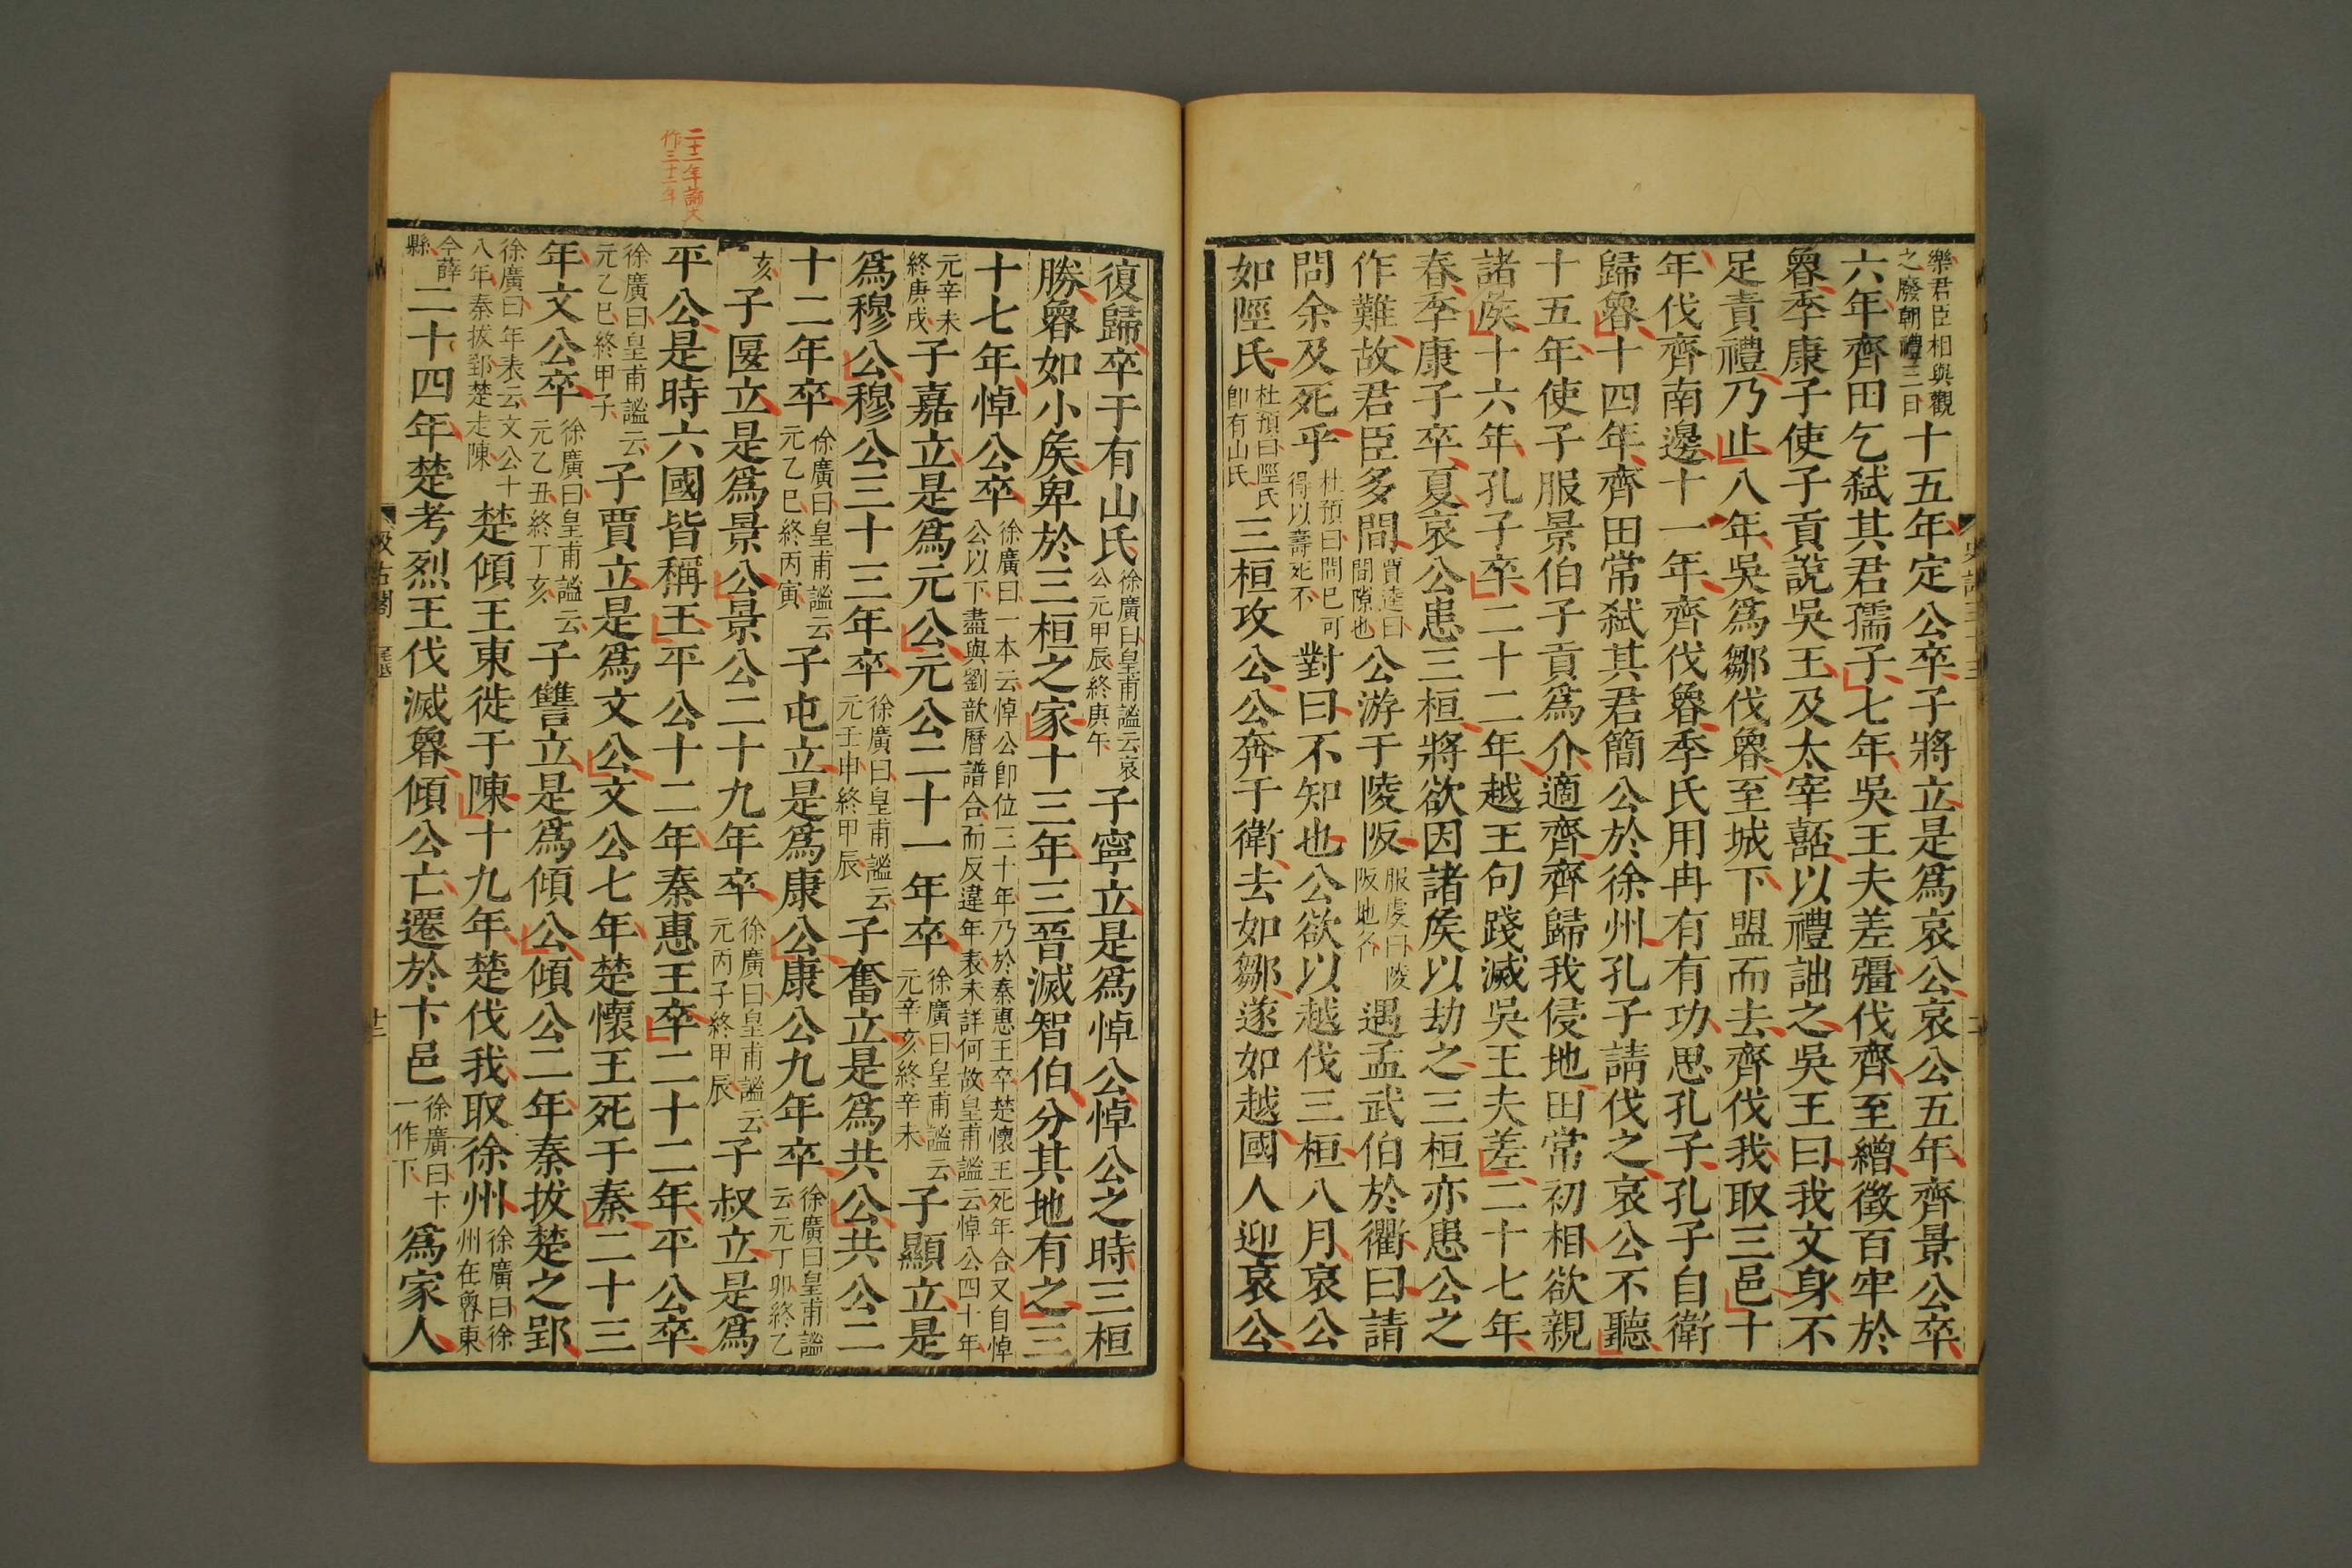 樂君臣相與觀之廢朝禮三日十五年定公卒子將立是爲哀公哀公五年齊景公卒
六年齊田乞弑其君孺子七年吳王夫差彊伐齊至繒徵百牢於
魯季康子使子貢說吳王及太宰嚭以禮詘之吳王曰我文身不
足責禮乃止八年吳爲鄒伐魯至城下盟而去齊伐我取三邑十
年伐齊南邊十一年齊伐魯季氏用冉有有功思孔子孔子自衛
歸魯十四年齊田常弑其君簡公於徐州孔子請伐之哀公不聽
十五年使子服景伯子貢爲介適齊齊歸我侵地田常初相欲親
諸矦十六年孔子卒二十二年越王句踐滅吳王夫差二十七年
春季康子卒夏哀公患三桓將欲因諸矦以劫之三桓亦患公之
作難故君臣多間賈逵曰間隙也公游于陵阪服虔曰陵阪地名遇孟武伯於衢曰請
問余及死乎杜預曰問已可得以壽死不對曰不知也公欲以越伐三桓八月哀公
如陘氏杜預曰陘氏卽有山氏三桓攻公公奔于衛去如鄒遂如越國人迎哀公
復歸卒于有山氏徐廣曰皇甫謐云哀公元甲辰終庚午子寧立是爲悼公悼公之時三桓
勝魯如小矦卑於三桓之家十三年三晉滅智伯分其地有之三
十七年悼公卒徐廣曰一本云悼公卽位三十年乃於秦惠王卒楚懷王死年合又自悼公以下盡與劉歆曆譜合而反違年表未詳何故皇甫謐云悼公四十年
元辛未終庚戌子嘉立是爲元公元公二十一年卒徐廣曰皇甫謐云元辛亥終辛未子顯立是
爲穆公穆公三十三年卒徐廣曰皇甫謐云元壬申終甲辰子奮立是爲共公共公二
十二年卒徐廣曰皇甫謐云元乙巳終丙寅子屯立是爲康公康公九年卒徐廣曰皇甫謐云元丁卯終乙
亥子匽立是爲景公景公二十九年卒徐廣曰皇甫謐云元丙子終甲辰子叔立是爲
平公是時六國皆稱王平公十二年秦惠王卒二十二年平公卒
徐廣曰皇甫謐云元乙巳終甲子子賈立是爲文公文公七年楚懷王死于秦二十三
年文公卒徐廣曰皇甫謐云元乙丑終丁亥子讐立是爲傾公傾公二年秦拔楚之郢
徐廣曰年表云文公十八年秦拔郢楚走陳楚傾王東徙于陳十九年楚伐我取徐州徐廣曰徐州在魯東
今薛縣二十四年楚考烈王伐滅魯傾公亡遷於卞邑徐廣曰卞一作下爲家人
汲古閣